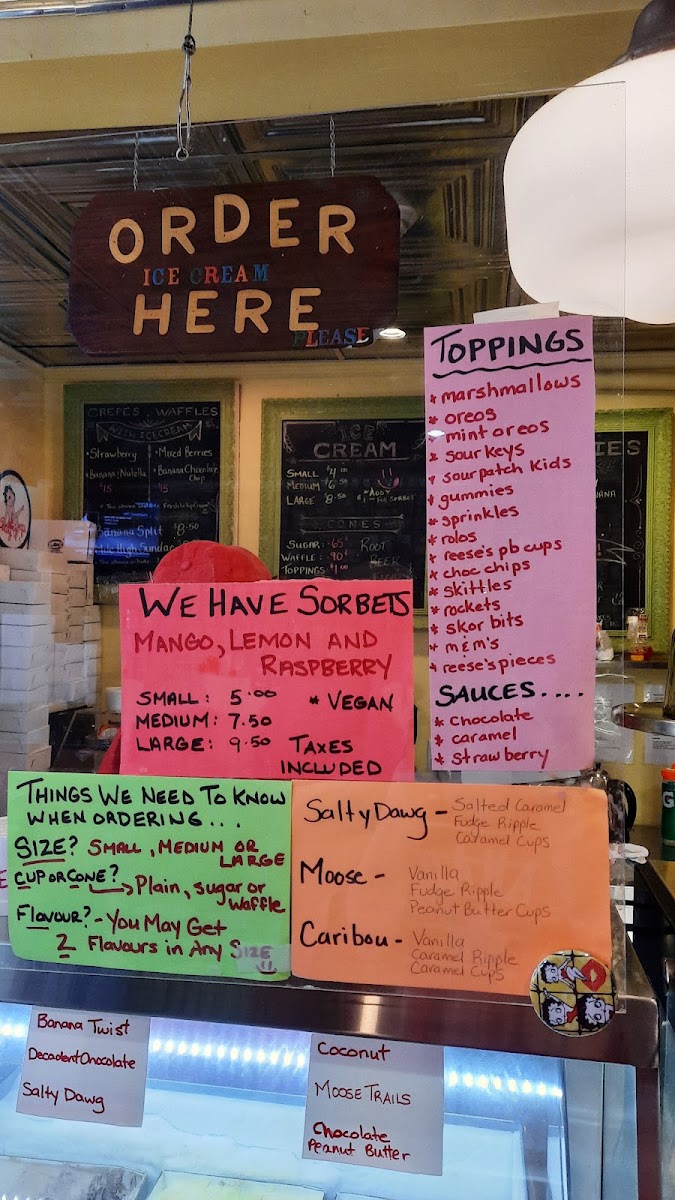 ORDER
ICE CREAM
HERE
PLEASE
TOPPINGS
* marshmallows
* oreos
* mint oreos
* sour keys
* sourpatch kids
* gummies
* sprinkles
* rolos
* reese's pb cups
* choc chips
* skittles
* rockets
* skor bits
* m&m's
* reese's pieces
SAUCES....
* chocolate
* caramel
* strawberry
CREPES, WAFFLES
WITH ICE CREAM
• Strawberry
• Banana Nutella
$15
• Mixed Berries
• Banana Chocolate
Chip
$15
Banana Split $8.50
High Sundae
ICE
CREAM
SMALL $4.00
MEDIUM $6.50
LARGE $8.50
CONES
SUGAR: .65
WAFFLE: .90
TOPPINGS $1.00
ROOT
BEER
WE HAVE SORBETS
MANGO, LEMON AND
RASPBERRY
SMALL: 5.00 * VEGAN
MEDIUM: 7.50
LARGE: 9.50 TAXES
INCLUDED
THINGS WE NEED TO KNOW
WHEN ORDERING...
SIZE? SMALL, MEDIUM OR
LARGE
CUP OR CONE?
Plain, sugar or
waffle
FLAVOUR? - You May Get
2 Flavours in Any SIZE
Salty Dawg - Salted Caramel
Fudge Ripple
Caramel Cups
Moose - Vanilla
Fudge Ripple
Peanut Butter Cups
Caribou - Vanilla
Caramel Ripple
Caramel Cups
Banana Twist
Decadent Chocolate
Salty Dawg
Coconut
MOOSE TRAILS
Chocolate
Peanut Butter